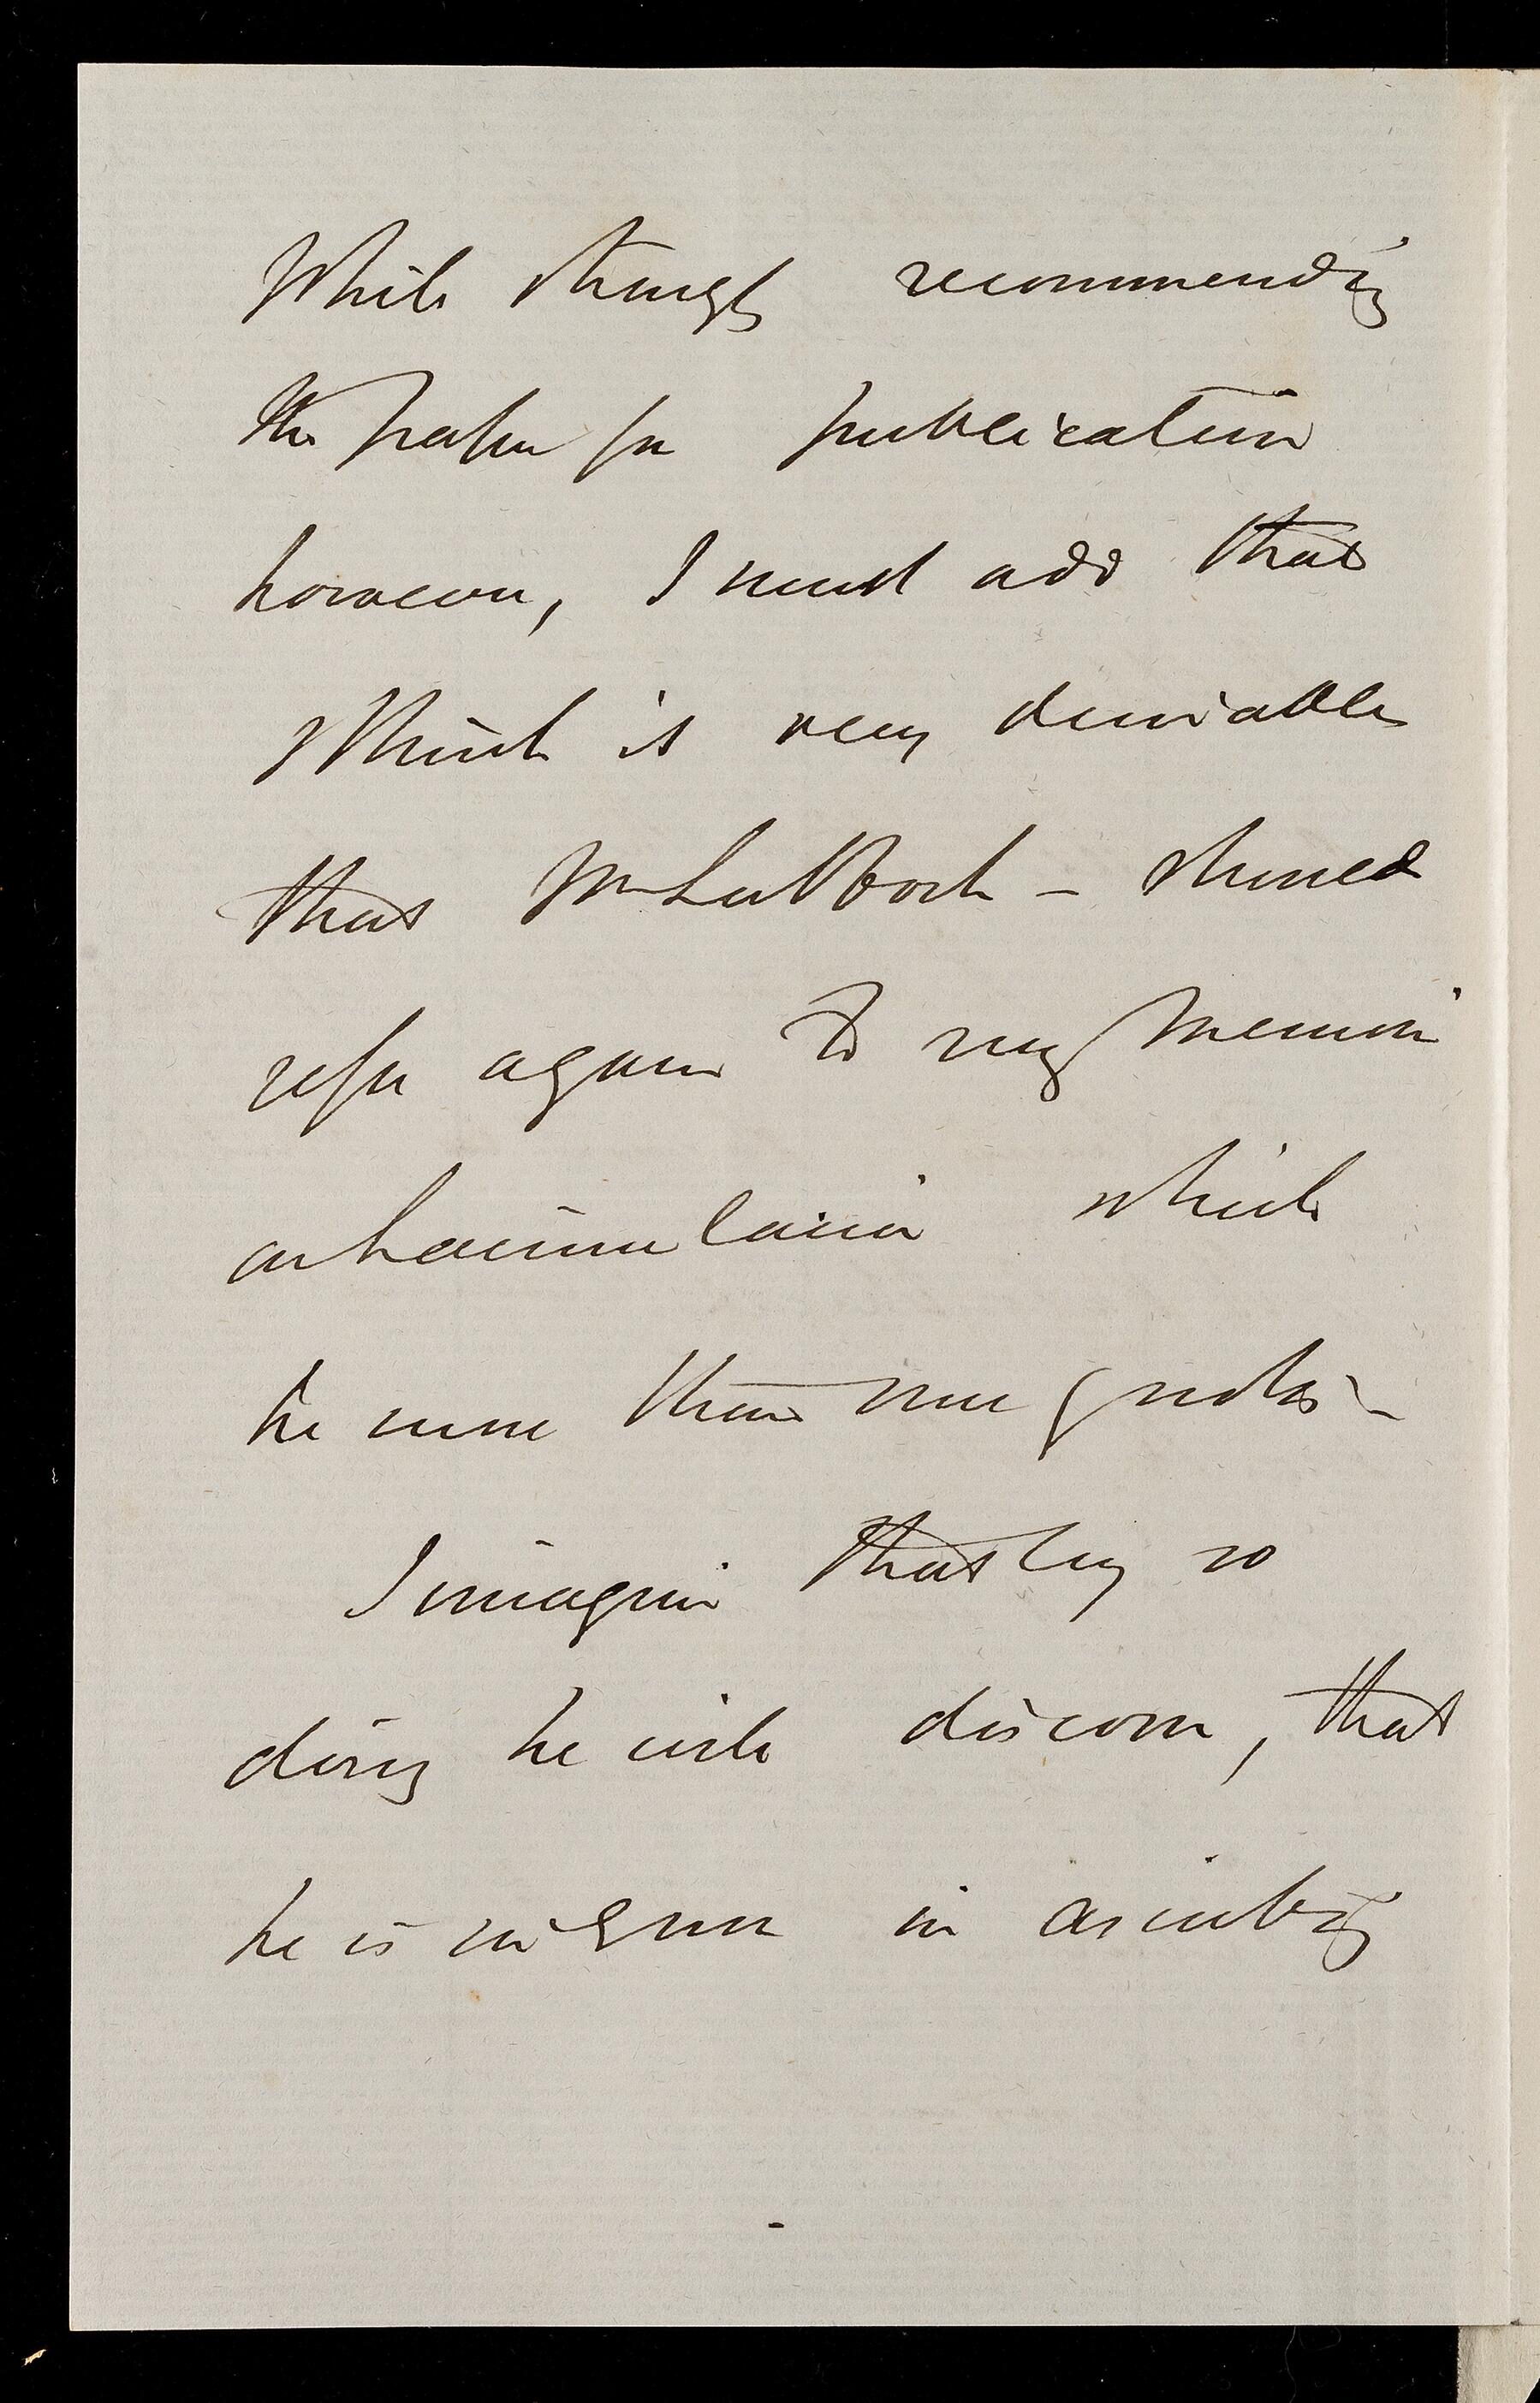 While strongly recommending
the paper for publication
however, I must add that
I think it very desirable
that Mr Lubbock – should
refer again to my memoir
on Lacinularia which
he more than once quotes –
I imagine that by so
doing he will discover, that
he is in error in ascribing